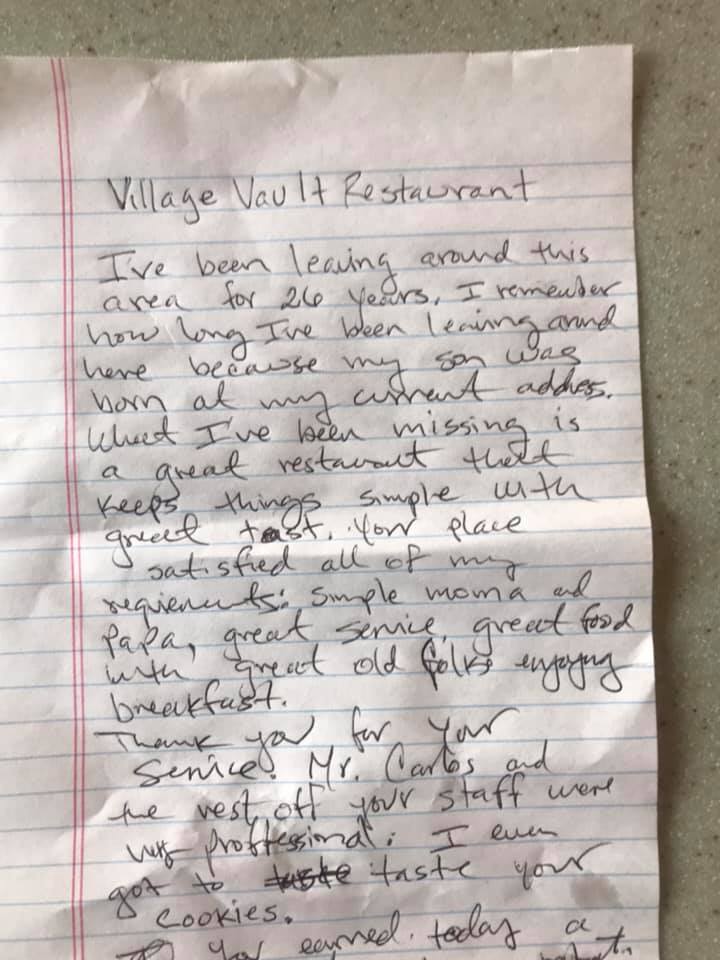 Village Vault Restaurant
I've been leaving around this
area for 26 years. I remember
how long I've been leaving arund
here because my son was
born at my current address.
What I've been missing is
a great restaurant that
keeps things simple with
great tast. Your place
satisfied all of my
requienents: simple moma and
Papa, great service, great food
with great old folks enjoying
breakfast.
Thank you for your
service. Mr. Carlos and
the rest off your staff were
very proffessional. I even
got to taste taste your
cookies.
You earned today a